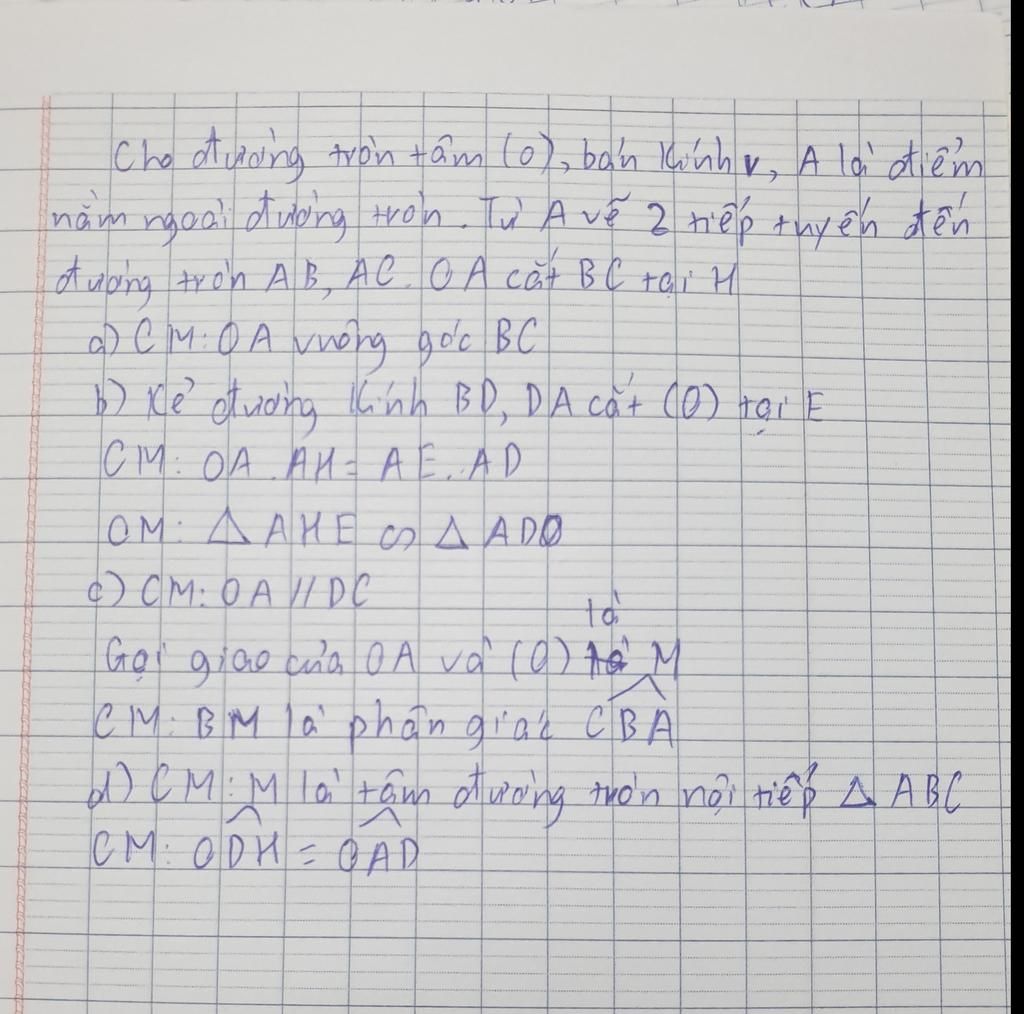 Cho đường tròn tâm (O), bán kính r, A là điểm
nằm ngoài đường tròn. Từ A vẽ 2 tiếp tuyến đến
đường tròn AB, AC. OA cắt BC tại H
a) CM: OA vuông góc BC
b) Kẻ đường kính BD, DA cắt (O) tại E
CM: OA. AH = AE. AD
CM: △ AHE ∽ △ ADO
c) CM: OA // DC
Gọi giao của OA và (O) là M
CM: BM là phân giác \widehat{CBA}
d) CM: M là tâm đường tròn nội tiếp △ ABC
CM: \widehat{ODH} = \widehat{OAD}